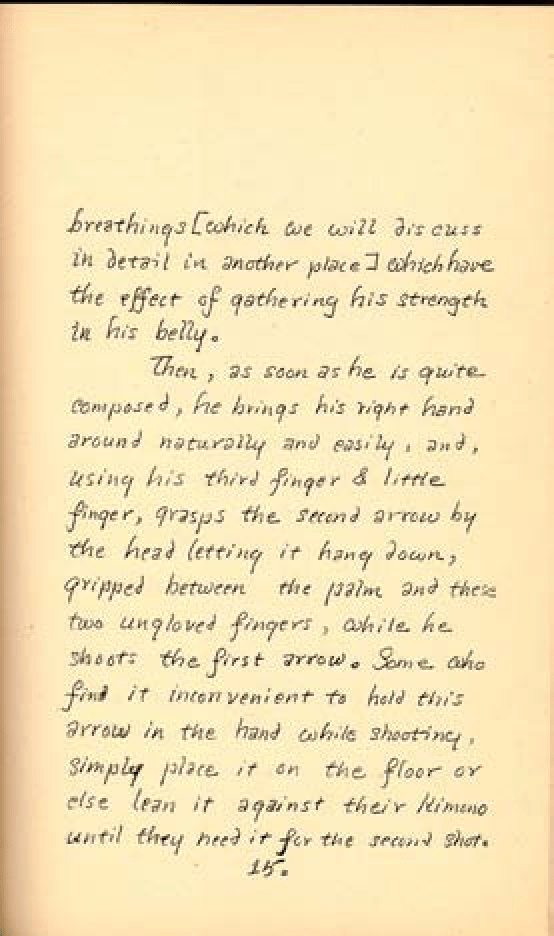 breathings [which we will discuss
in detail in another place] which have
the effect of gathering his strength
in his belly.
Then, as soon as he is quite
composed, he brings his right hand
around naturally and easily, and,
using his third finger & little
finger, grasps the second arrow by
the head letting it hang down,
gripped between the palm and these
two ungloved fingers, while he
shoots the first arrow. Some who
find it inconvenient to hold this
arrow in the hand while shooting,
simply place it on the floor or
else lean it against their Kimono
until they need it for the second shot.
15.